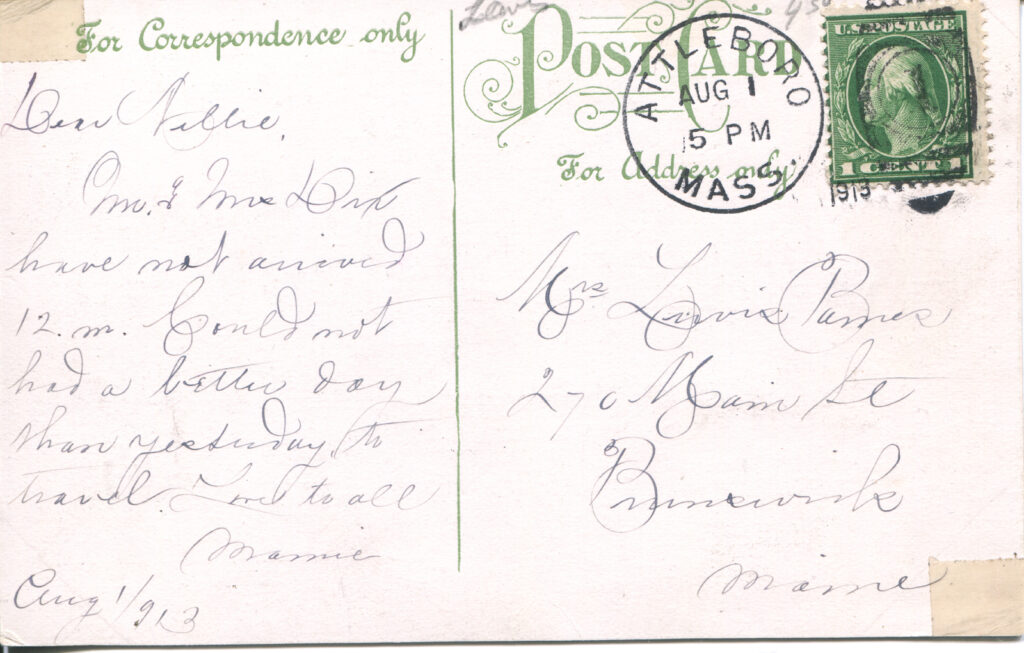 For Correspondence only
Dear Nellie,
Mr. & Mrs Dix
have not arrived
12. m. Could not
had a better day
than yesterday, to
travel. Love to all
Mamie
Aug 1/913
POST CARD
For Address only
ATTLEBORO
AUG 1
5 PM
MASS.
1913
U.S. POSTAGE
1 CENT 1
Mrs
270 Main St
Brunswick
Maine